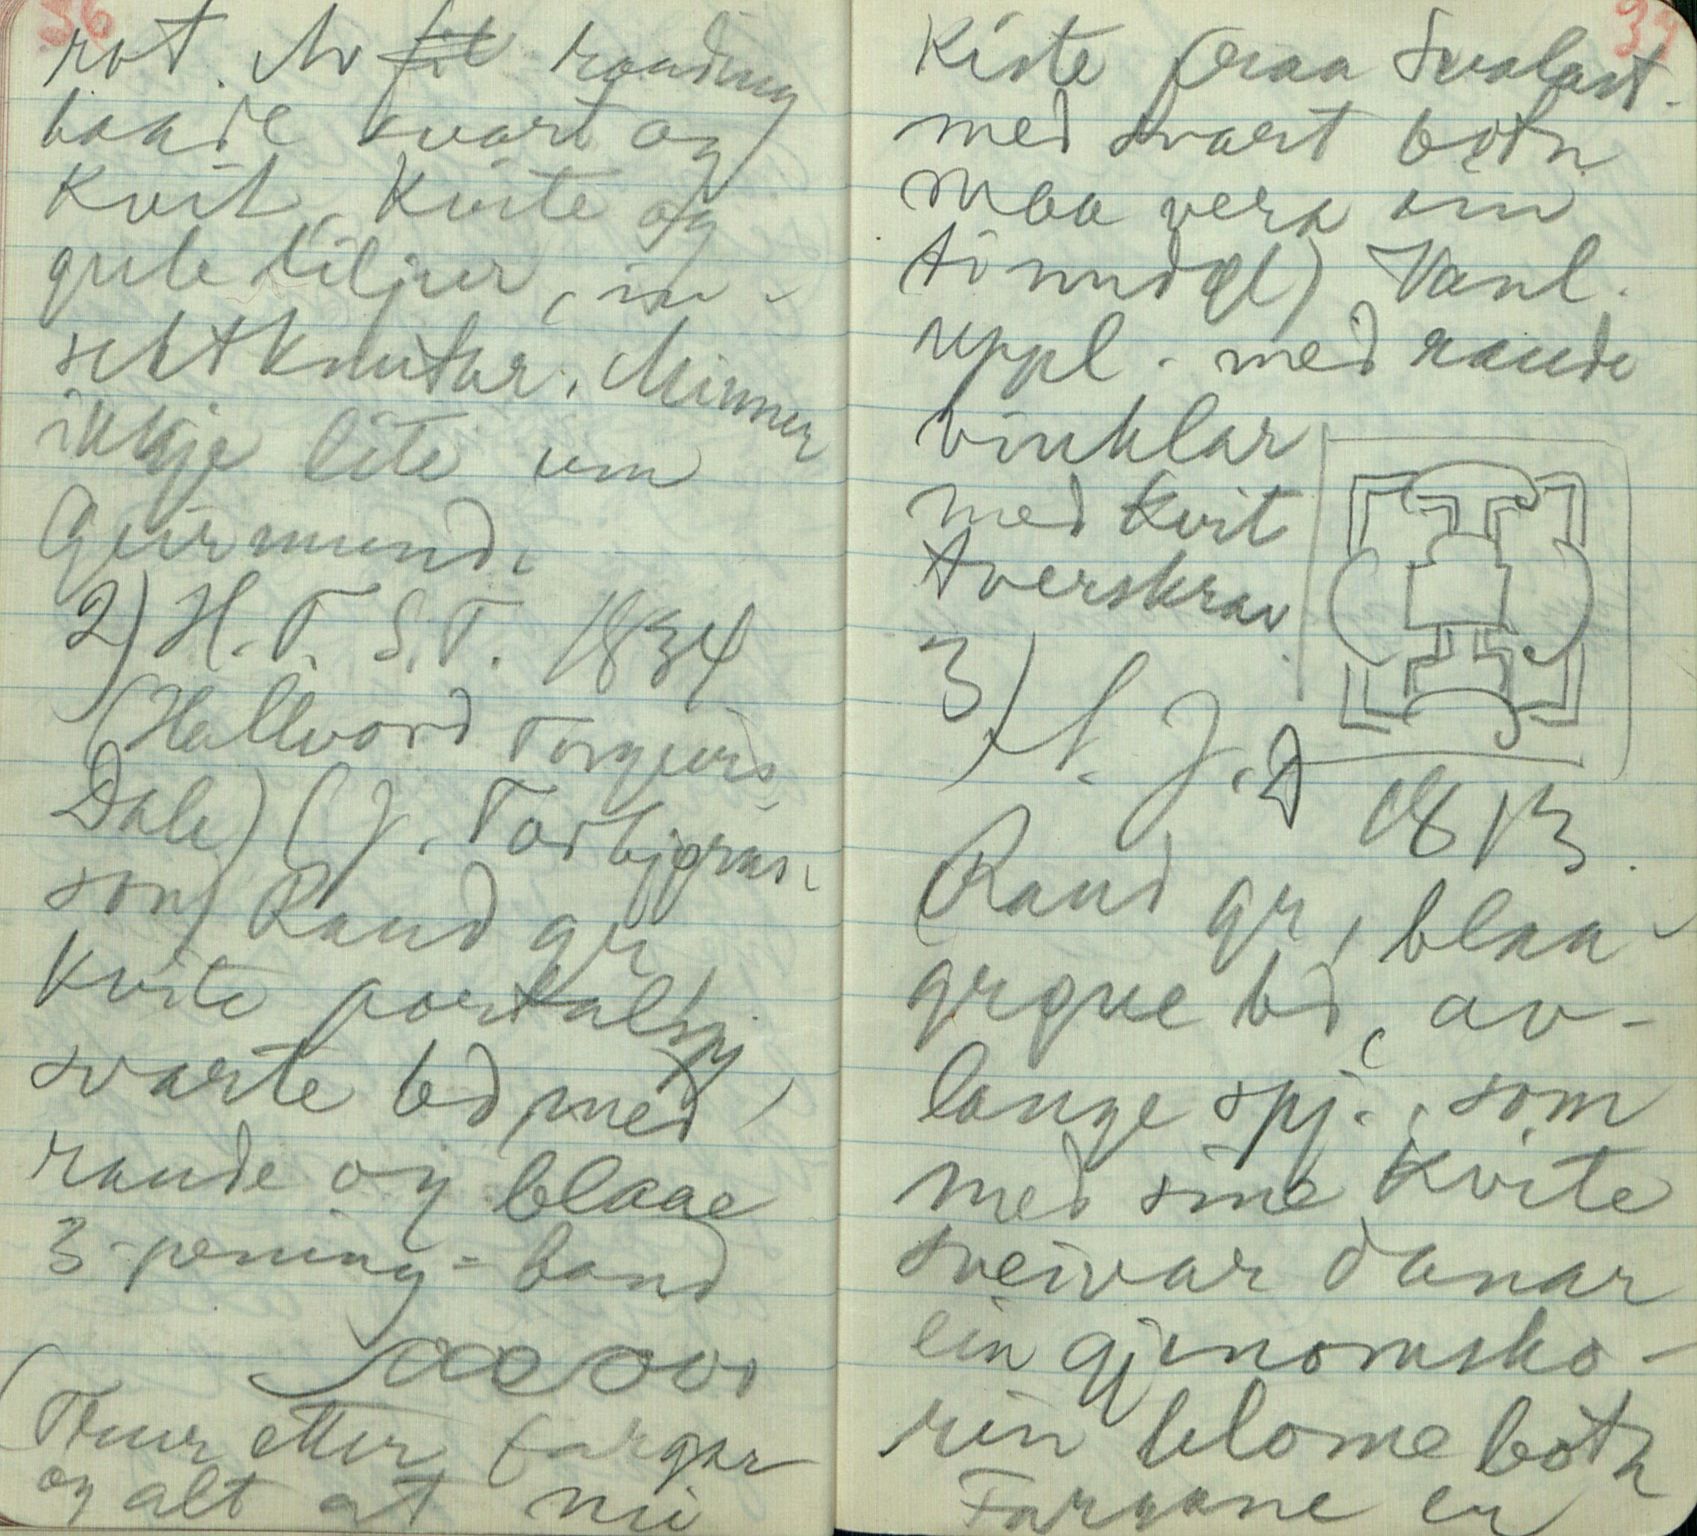 36
rot. Av fil rauding
baade svart og
Kvit, Kvite og
gule tiljur, in-
sektknutar. Minner
ikkje lite um
Geirmund.
2) H. T. S. T. 1834
(Hallvord Torgeirs
Dale) (J. Torbjørns.
son) Raud gr
Kvite portalspj,
svarte bd med
raude og blaae
3-pening-band
(Trur etter fargar
og alt at mi
37
Kiste fraa Svalast.
med svart botn
maa vera ein
tinndøl) Vanl.
uppl. med raude
vinklar
med Kvit
tverskrav
3) S. J. D
1813.
(Raud gr, blaa-
grøne bd, av-
lange spj., som
med sine Kvite
sveivar danar
ein gjenomsko-
rin blome botn
Fargane er